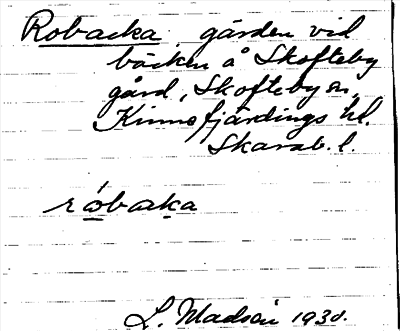 Robacka gärden vid
bäcken å Skofteby
gård, Skofteby sn,
Kinnefjärdings hd.
Skarab. l.
róbacka
L. Madsén 1930.